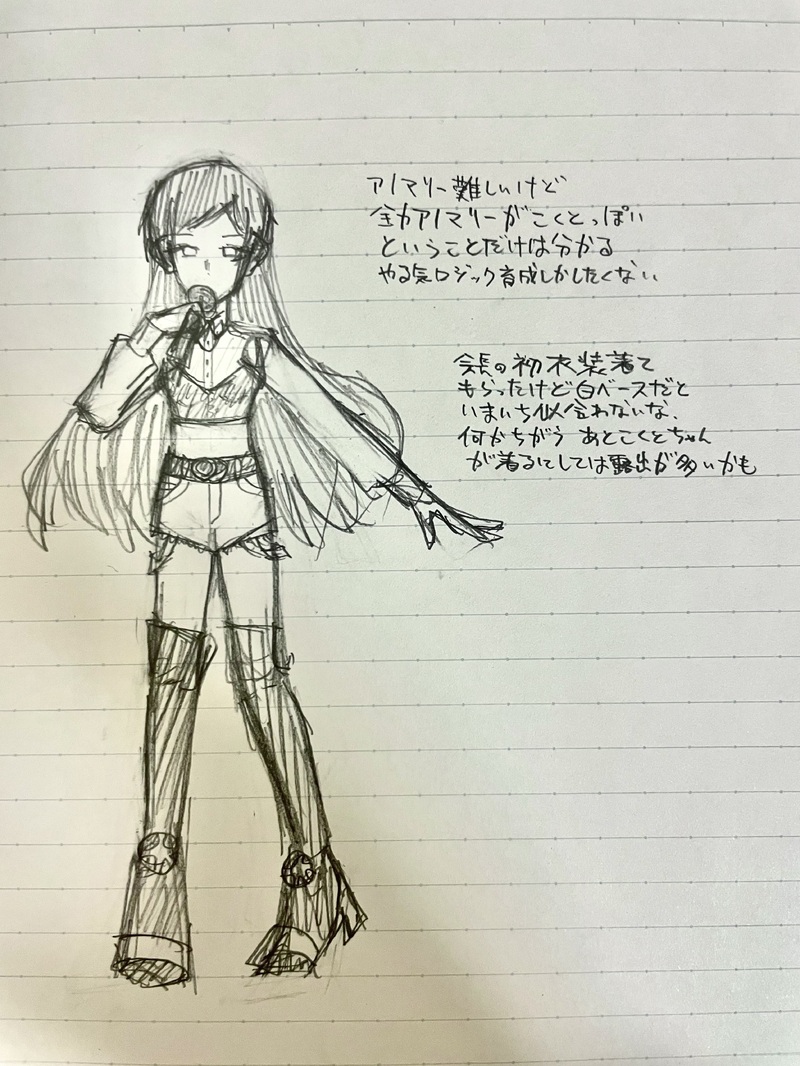 アノマリー難しいけど
全力アノマリーがこくとっぽい
ということだけは分かる
やる気ロジック育成しかしたくない
会長の初衣装着て
もらったけど白ベースだと
いまいち似合わないな、
何かちがう あとこくとちゃん
が着るにしては露出が多いかも